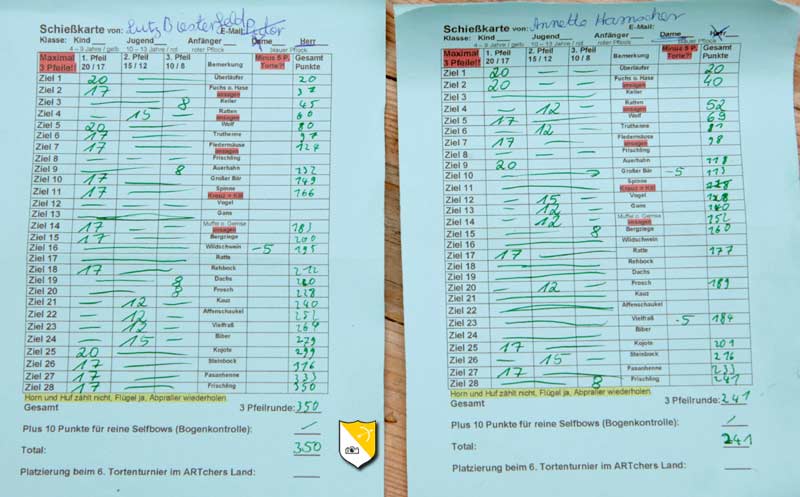 Schießkarte von: Lutz E-Mail:
Klasse: Kind Jugend Anfänger Dame Herr
4 – 9 Jahre / gelb 10 – 13 Jahre / rot roter Pflock blauer Pflock
Maximal 3 Pfeile!! 1. Pfeil 20 / 17 2. Pfeil 15 / 12 3. Pfeil 10 / 8 Bemerkung Minus 5 P. Torte?! Gesamt Punkte
Ziel 1 20 — — Überläufer 20
Ziel 2 17 — Fuchs o. Hase ansagen 37
Ziel 3 — 8 Keiler 45
Ziel 4 — 15 — Ratten ansagen 60
Ziel 5 20 — Wolf 80
Ziel 6 17 — Truthenne 97
Ziel 7 17 — Fledermäuse ansagen 124
Ziel 8 — — — Frischling
Ziel 9 — 8 Auerhahn 132
Ziel 10 17 — Großer Bär 149
Ziel 11 17 — Spinne Kreuz = Kill 166
Ziel 12 — — — Vogel
Ziel 13 — Gans
Ziel 14 17 — — Muffel o. Gemse ansagen 183
Ziel 15 17 — Bergziege 200
Ziel 16 — Wildschwein -5 195
Ziel 17 — Ratte
Ziel 18 17 — Rehbock 212
Ziel 19 — 8 Dachs 220
Ziel 20 — 8 Frosch 228
Ziel 21 — 12 — Kauz 240
Ziel 22 — 12 — Affenschaukel 252
Ziel 23 — 12 — Vielfraß 264
Ziel 24 — 15 — Biber 279
Ziel 25 20 — Kojote 299
Ziel 26 17 — Steinbock 316
Ziel 27 17 — Pasanhenne 333
Ziel 28 17 — Frischling 350
Horn und Huf zählt nicht, Flügel ja, Abpraller wiederholen.
Gesamt 3 Pfeilrunde: 350
Plus 10 Punkte für reine Selfbows (Bogenkontrolle):
Total: 350
Platzierung beim 6. Tortenturnier im ARTchers Land:
Schießkarte von: Annette Hamscher E-Mail:
Klasse: Kind Jugend Anfänger Dame Herr
4 – 9 Jahre / gelb 10 – 13 Jahre / rot roter Pflock blauer Pflock
Maximal 3 Pfeile!! 1. Pfeil 20 / 17 2. Pfeil 15 / 12 3. Pfeil 10 / 8 Bemerkung Minus 5 P. Torte?! Gesamt Punkte
Ziel 1 20 — — Überläufer 20
Ziel 2 20 — — Fuchs o. Hase ansagen 40
Ziel 3 — Keiler
Ziel 4 — 12 — Ratten ansagen 52
Ziel 5 17 — Wolf 69
Ziel 6 — 12 — Truthenne 81
Ziel 7 17 — Fledermäuse ansagen 98
Ziel 8 — — — Frischling
Ziel 9 20 Auerhahn 118
Ziel 10 — Großer Bär -5 113
Ziel 11 — Spinne Kreuz = Kill
Ziel 12 — 15 — Vogel 128
Ziel 13 — 12 — Gans 140
Ziel 14 — 12 — Muffel o. Gemse ansagen 152
Ziel 15 — 8 Bergziege 160
Ziel 16 — Wildschwein
Ziel 17 17 — Ratte 177
Ziel 18 — Rehbock
Ziel 19 — Dachs
Ziel 20 — 12 — Frosch 189
Ziel 21 — Kauz
Ziel 22 — Affenschaukel
Ziel 23 — Vielfraß -5 184
Ziel 24 — Biber
Ziel 25 17 — Kojote 201
Ziel 26 — 15 — Steinbock 216
Ziel 27 17 — Pasanhenne 233
Ziel 28 — 8 Frischling 241
Horn und Huf zählt nicht, Flügel ja, Abpraller wiederholen.
Gesamt 3 Pfeilrunde: 241
Plus 10 Punkte für reine Selfbows (Bogenkontrolle):
Total: 241
Platzierung beim 6. Tortenturnier im ARTchers Land: